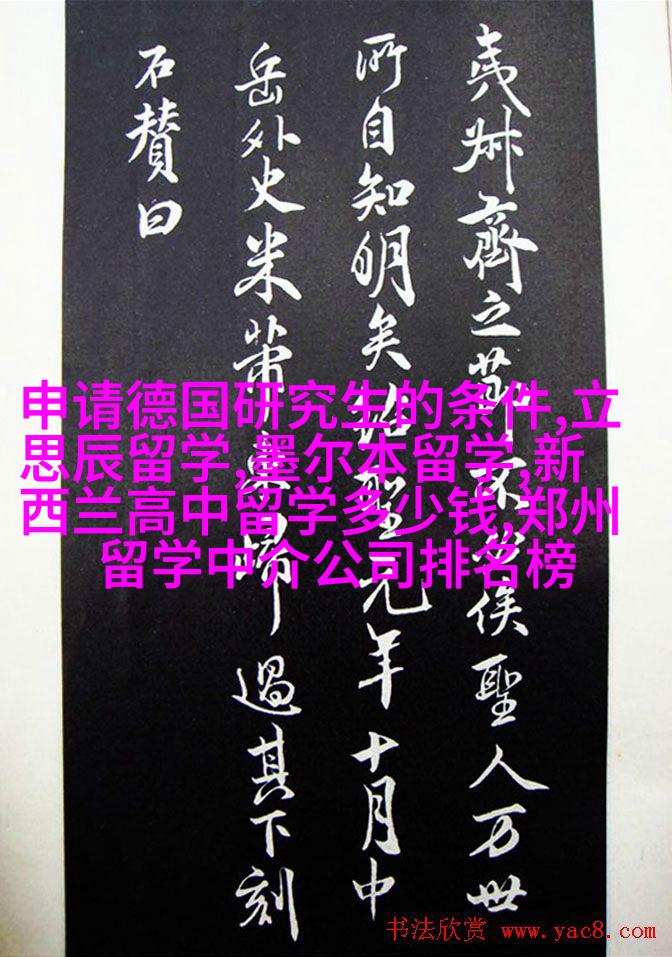 夷叔齊之不必俟聖人万世
所自知明矣紹聖元年十月中
岳外史米芾歸過其下刻
石贊曰
申请德国研究生的条件,立
思辰留学,墨尔本留学,新
西兰高中留学多少钱,郑州
留学中介公司排名榜
书法欣赏 www.yac8.com